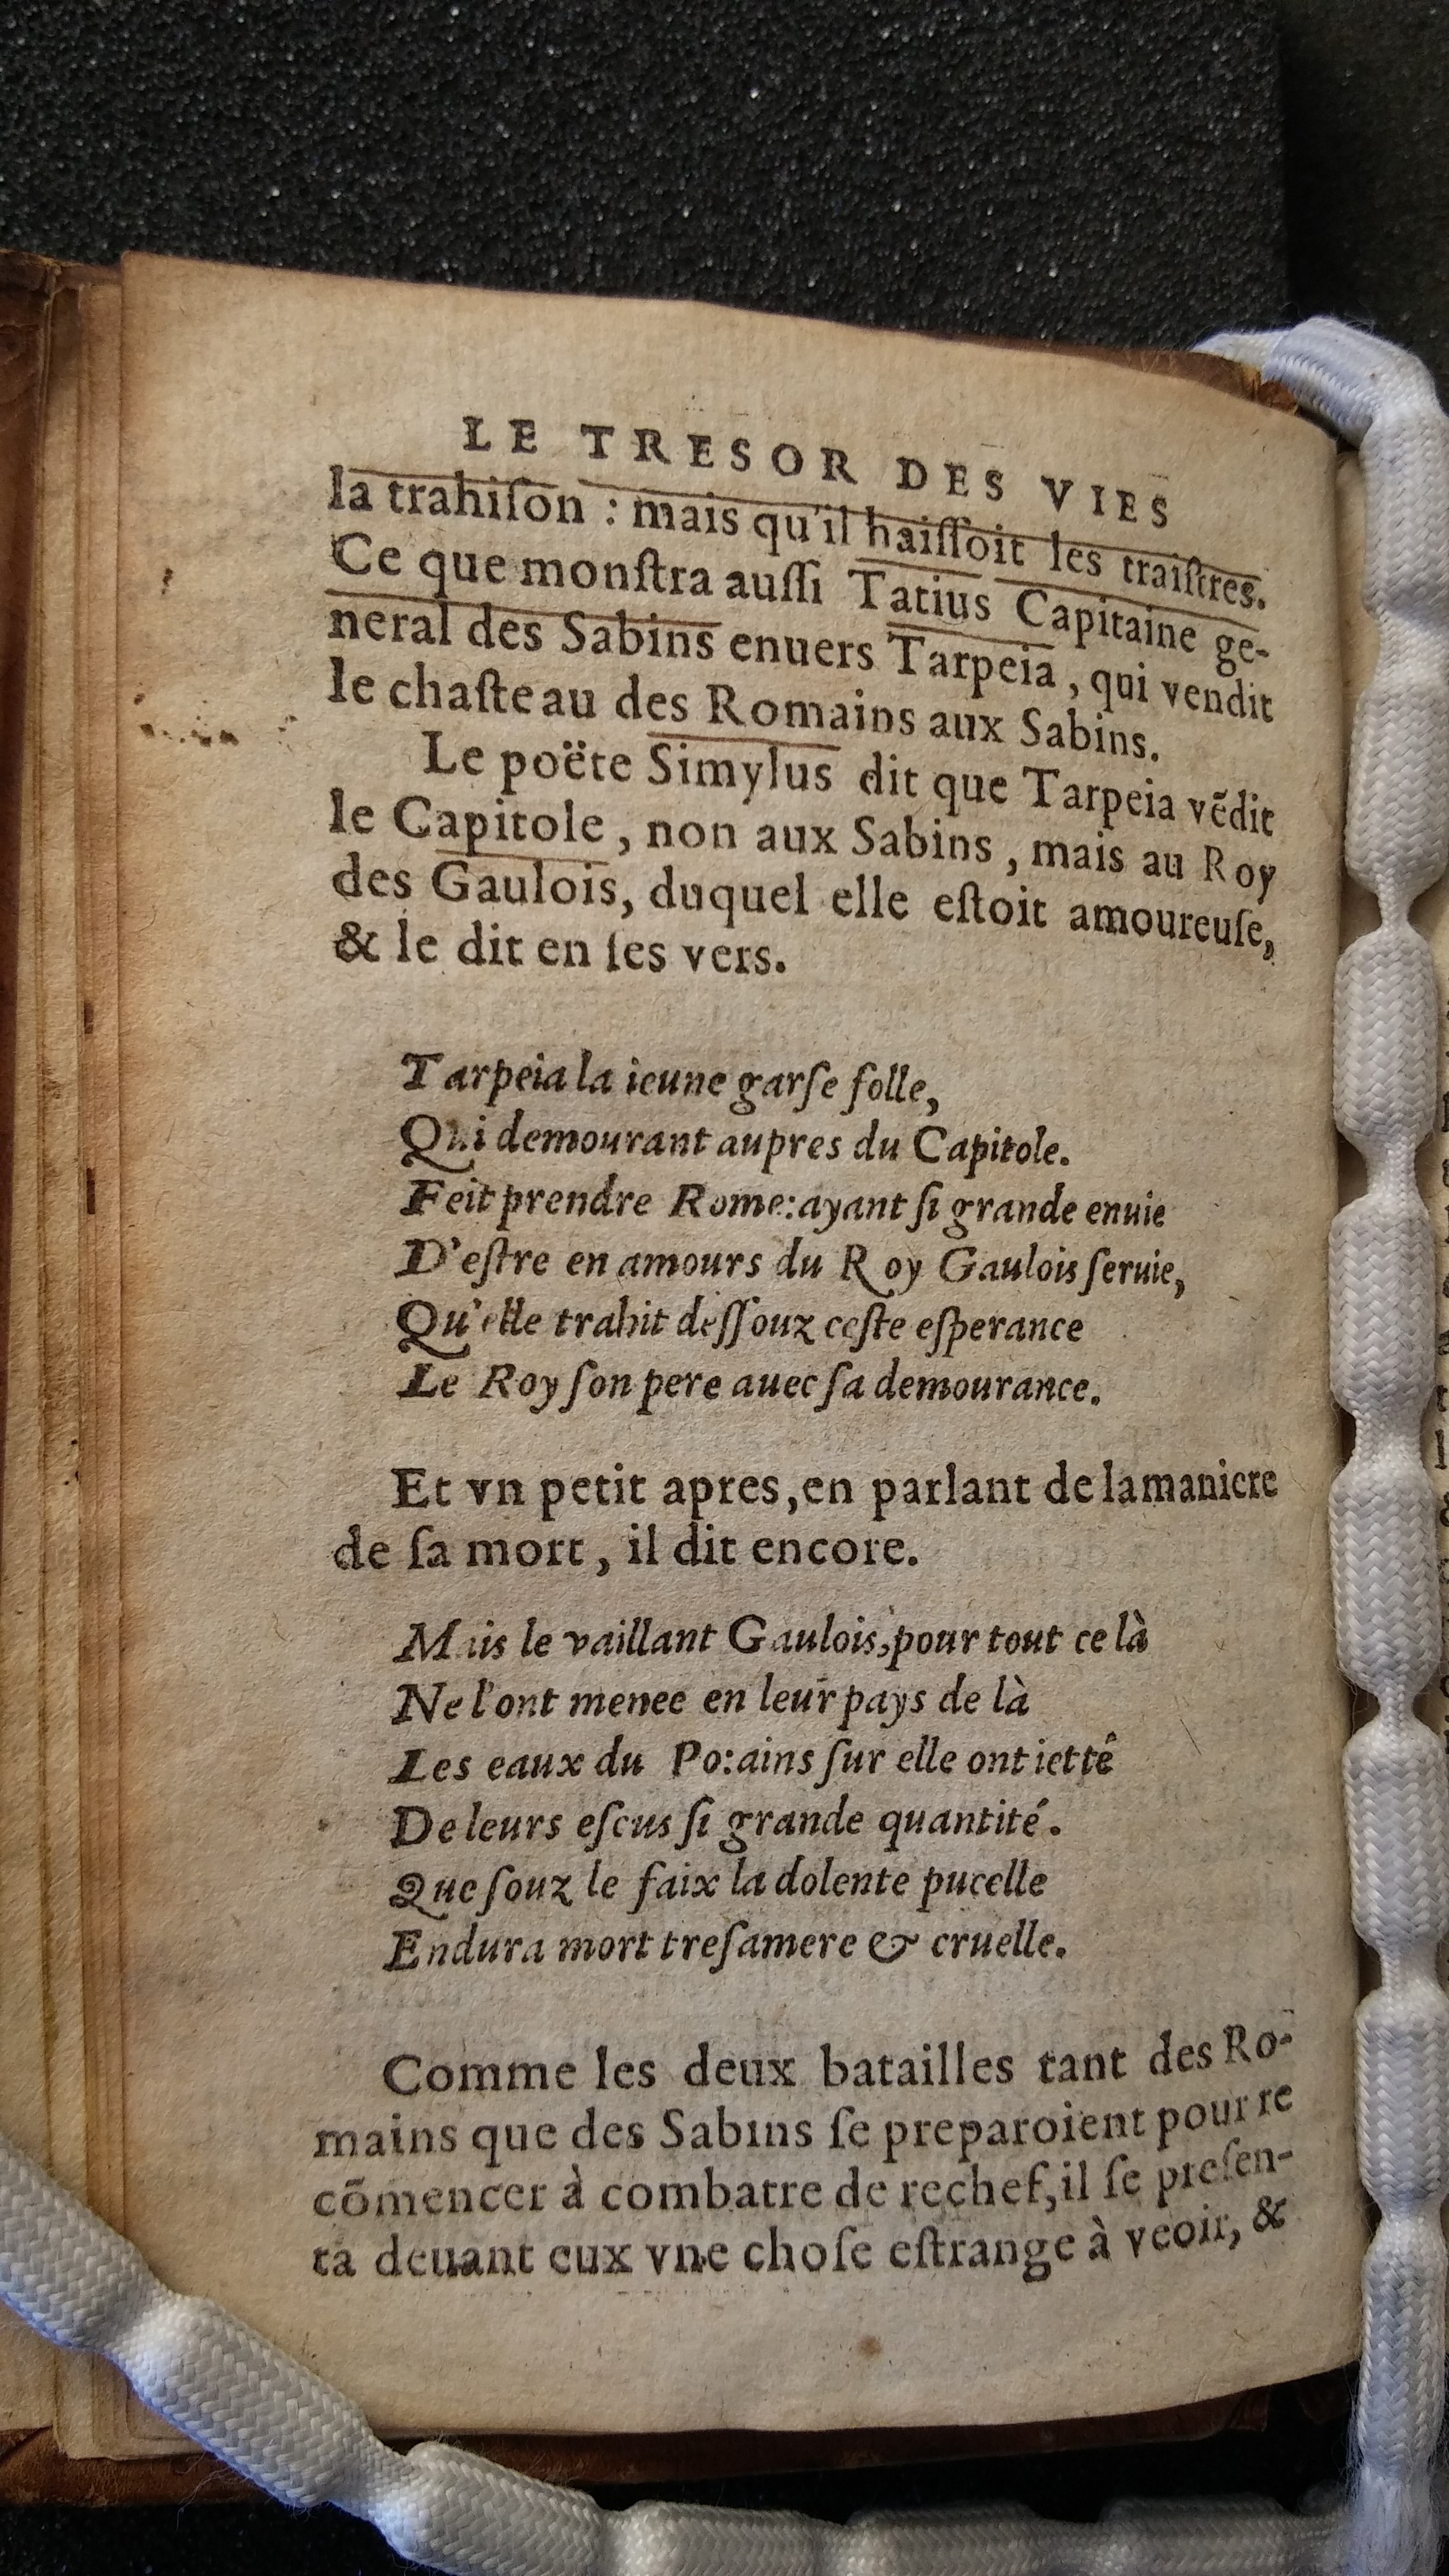 LE TRESOR DES VIES
la trahiſon : mais qu'il haiſſoit les traiſtres.
Ce que monſtra auſſi Tatius Capitaine ge-
neral des Sabins enuers Tarpeia, qui vendit
le chaſteau des Romains aux Sabins.
Le poëte Simylus dit que Tarpeia vẽdit
le Capitole, non aux Sabins, mais au Roy
des Gaulois, duquel elle eſtoit amoureuſe,
& le dit en ſes vers.
Tarpeia la ieune garſe folle,
Qui demourant aupres du Capitole.
Feit prendre Rome: ayant ſi grande enuie
D'eſtre en amours du Roy Gaulois ſeruie,
Qu'elle trahit deſſouz ceſte eſperance
Le Roy ſon pere auec ſa demourance.
Et vn petit apres, en parlant de la maniere
de ſa mort, il dit encore.
Mais le vaillant Gaulois, pour tout ce là
Ne l'ont menee en leur pays de là
Les eaux du Po: ains ſur elle ont ietté
De leurs eſcus ſi grande quantité.
Que ſouz le faix la dolente pucelle
Endura mort treſamere & cruelle.
Comme les deux batailles tant des Ro-
mains que des Sabins ſe preparoient pour re
cõmencer à combatre de rechef, il ſe preſen-
ta deuant eux vne choſe eſtrange à veoir, &